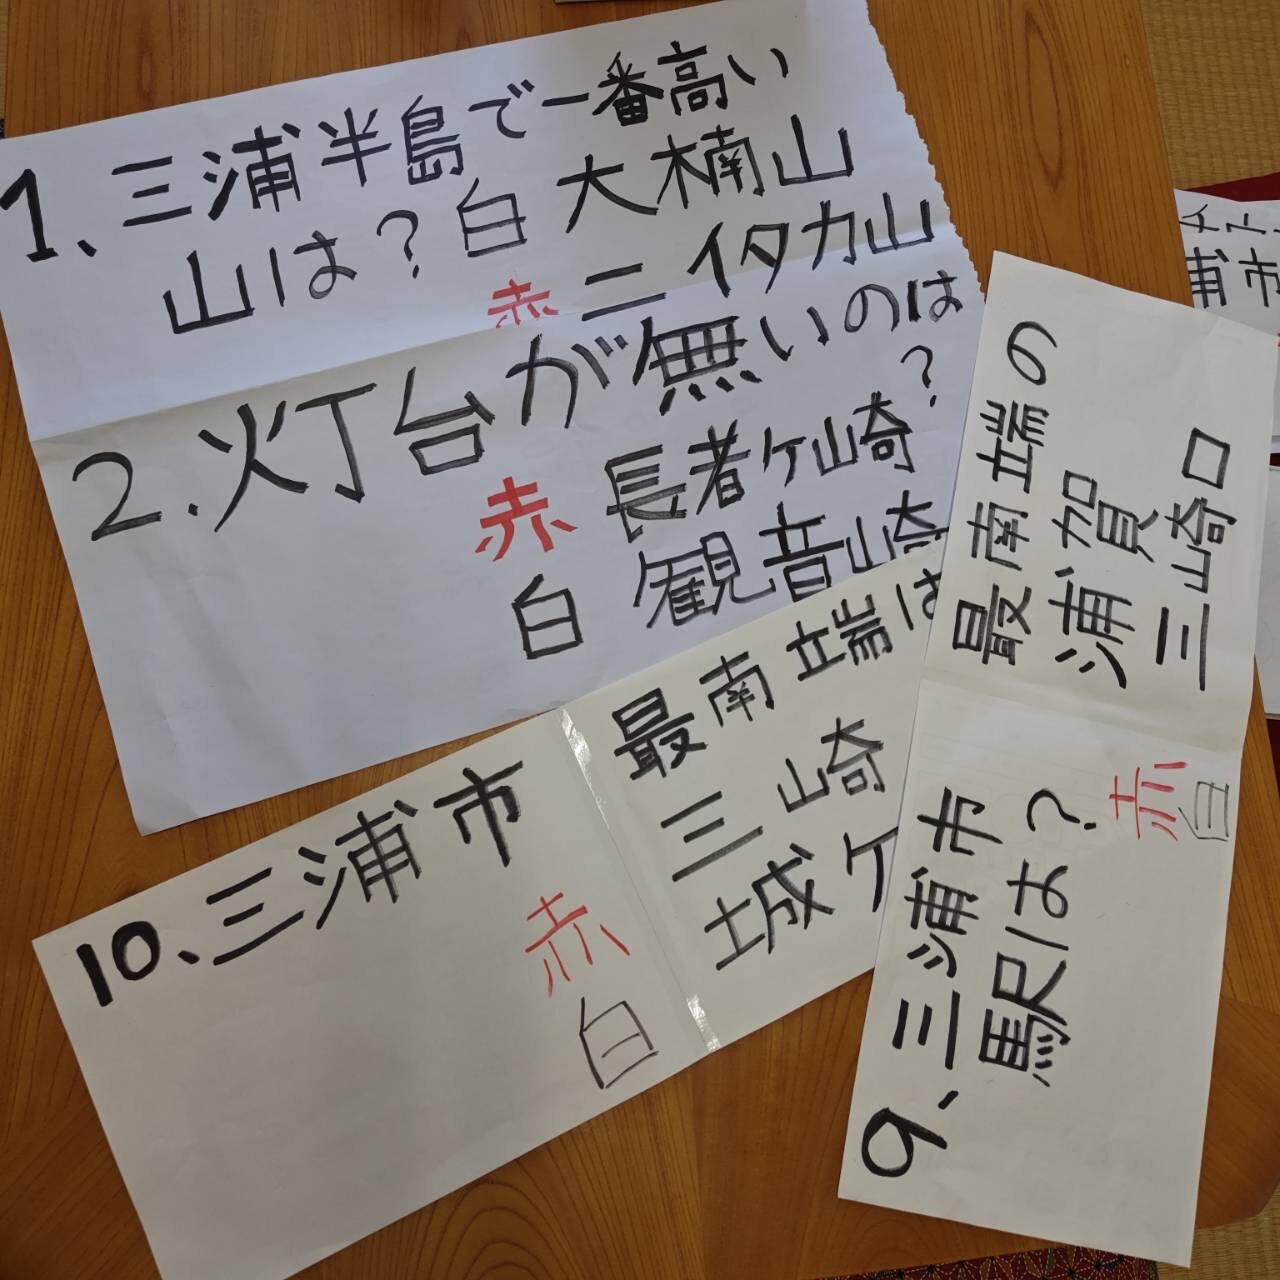 1、三浦半島で一番高い
山は？白 大楠山
赤 ニイタカ山
2.灯台が無いのは
？
赤 長者ケ崎
白 観音崎
10、三浦市 最南端は
赤 三崎
白 城ケ
9、三浦市 最南端の
駅は？ 浦賀
赤
白 三崎口
浦市